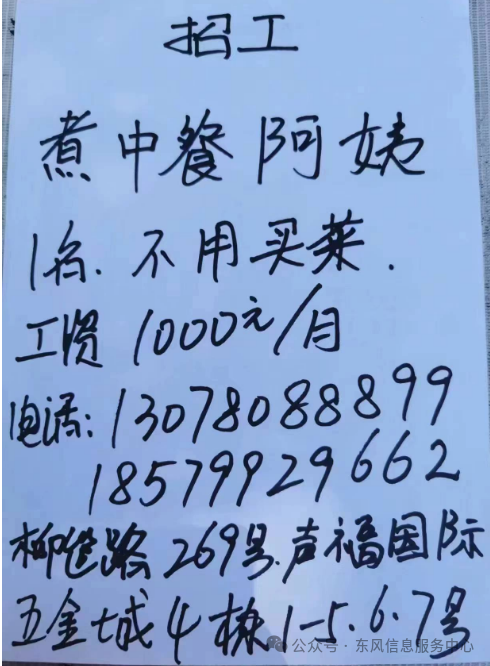 招工
煮中餐阿姨
1名.不用买菜.
工资1000元/月
电话:13078088899
18579929662
柳邕路269号.声福国际
五金城4栋1-5.6.7号
公众号·东风信息服务中心